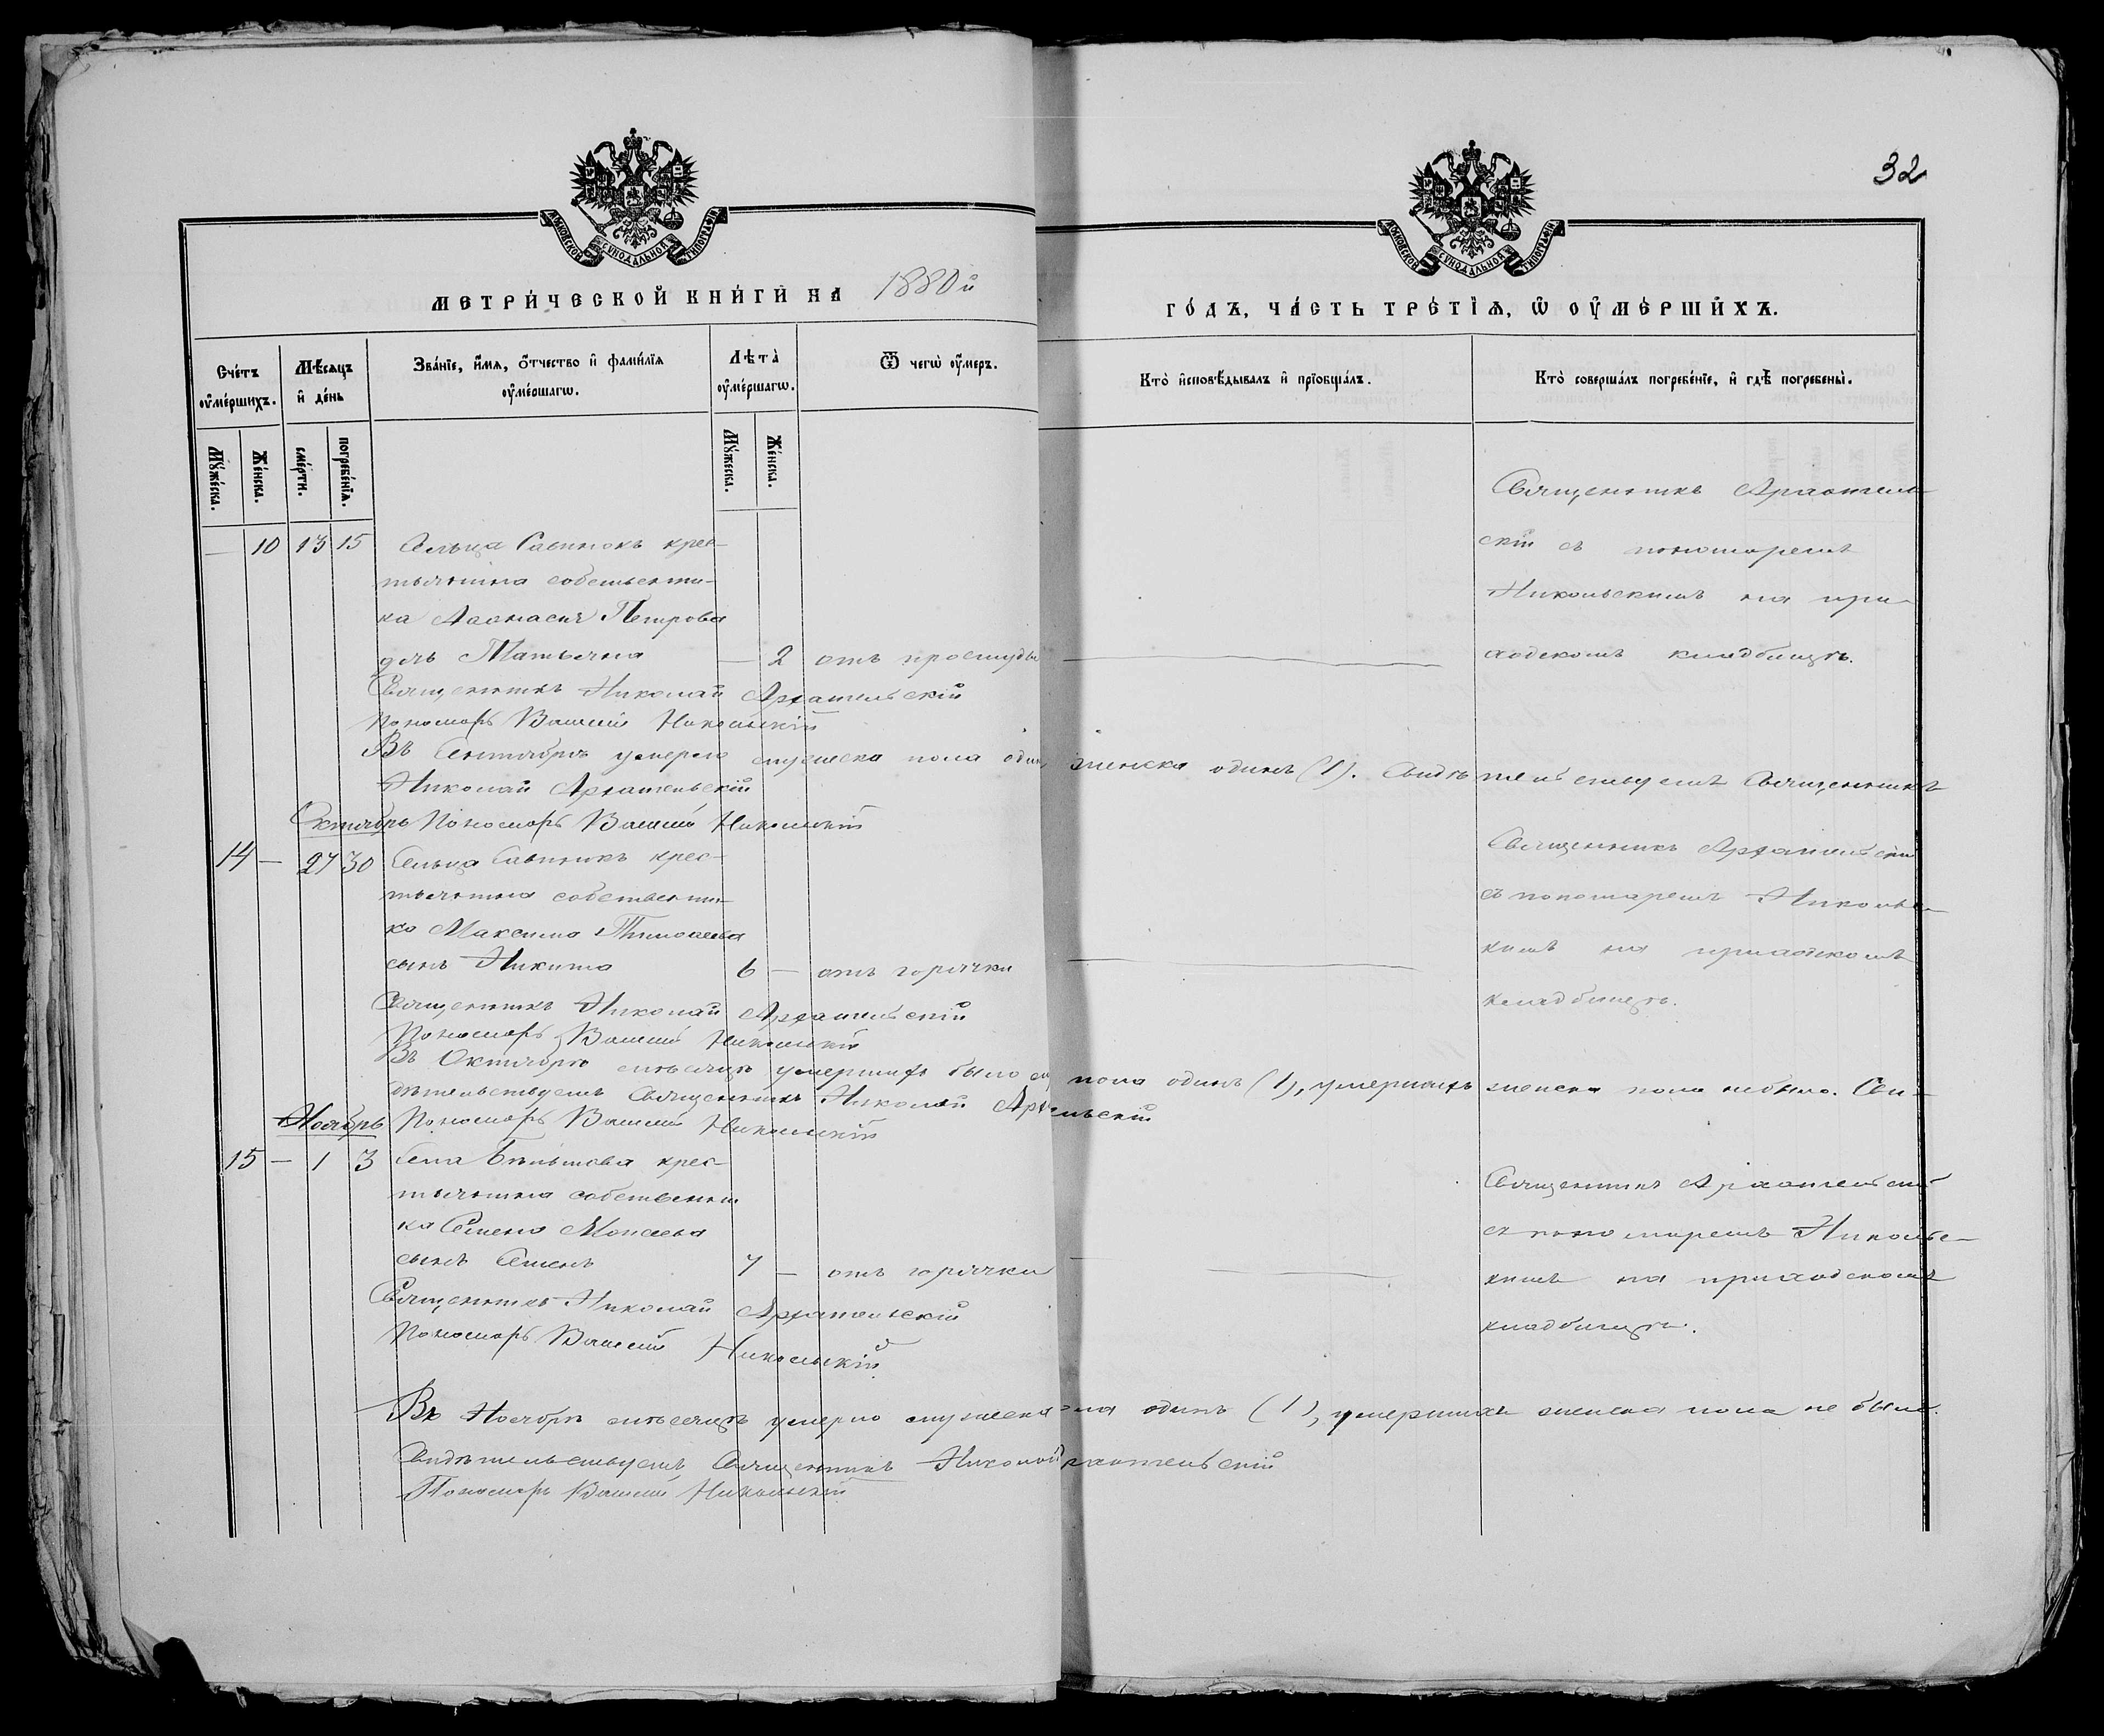 32
МОСКОВСКОЙ СѴНОДАЛЬНОЙ ТИПОГРАФІИ
МОСКОВСКОЙ СѴНОДАЛЬНОЙ ТИПОГРАФІИ
МЕТРИ́ЧЕСКОЙ КНИ́ГИ НА 1880й
ГО́ДЪ, ЧА́СТЬ ТРЕ́ТІѦ, Ѡ ОУ҆МЕ́РШИХЪ.
Сче́тъ оу҆ме́ршихъ.
Мѣ́сяцъ и҆ де́нь
Зва́нїе, и҆́мѧ, ѻ҆́тчество и҆ фами́лїѧ оу҆ме́ршагѡ.
Лѣ́та оу҆ме́ршагѡ.
Ѿ чегѡ̀ оу҆́меръ.
Кто̀ и҆сповѣ́дывалъ и҆ прїѡбща́лъ.
Кто̀ соверша́лъ погребе́нїе, и҆ гдѣ̀ погребены̀.
Мꙋ́жеска.
Же́нска.
сме́рти.
погребе́нїѧ.
Мꙋ́жеска.
Же́нска.
— 10 13 15 Сельца Савинокъ крес-
тьянина собственни-
ка Аѳонасія Петрова
дочь Татьяна — 2 отъ простуды
Священникъ Архангель-
скій съ пономаремъ
Никольскимъ на при-
ходскомъ кладбищѣ.
Священникъ Николай Архангельскій
Пономарь Василій Никольскій
Въ Сентябрѣ умерло мужеска пола одинъ, женска одинъ (1). Свидѣтельствуетъ Священникъ
Николай Архангельскій
Октябрь Пономарь Василій Никольскій
14 — 27 30 Сельца Савинокъ крес-
тьянина собственни-
ка Максима Тимоѳеева
сынъ Никита 6 — отъ горячки
Священникъ Архангельскій
съ пономаремъ Николь-
скимъ на приходскомъ
кладбищѣ.
Священникъ Николай Архангельскій
Пономарь Василій Никольскій
Въ Октябрѣ мѣсяцѣ умершихъ было м. пола одинъ (1), умершихъ женска пола небыло. Сви-
дѣтельствуетъ Священникъ Николай Архангельскій
Ноябрь Пономарь Василій Никольскій
15 — 1 3 Села крес-
тьянина собственни
ка Семена Моисеева
сынъ Семенъ 7 — отъ горячки
Священникъ Архангельскій
съ пономаремъ Николь-
скимъ на приходскомъ
кладбищѣ.
Священникъ Николай Архангельскій
Пономарь Василій Никольскій
Въ Ноябрѣ мѣсяцѣ умерло мужеска пола одинъ (1), умершихъ женска пола не было.
Свидѣтельствуетъ Священникъ Николай Архангельскій
Пономарь Василій Никольскій